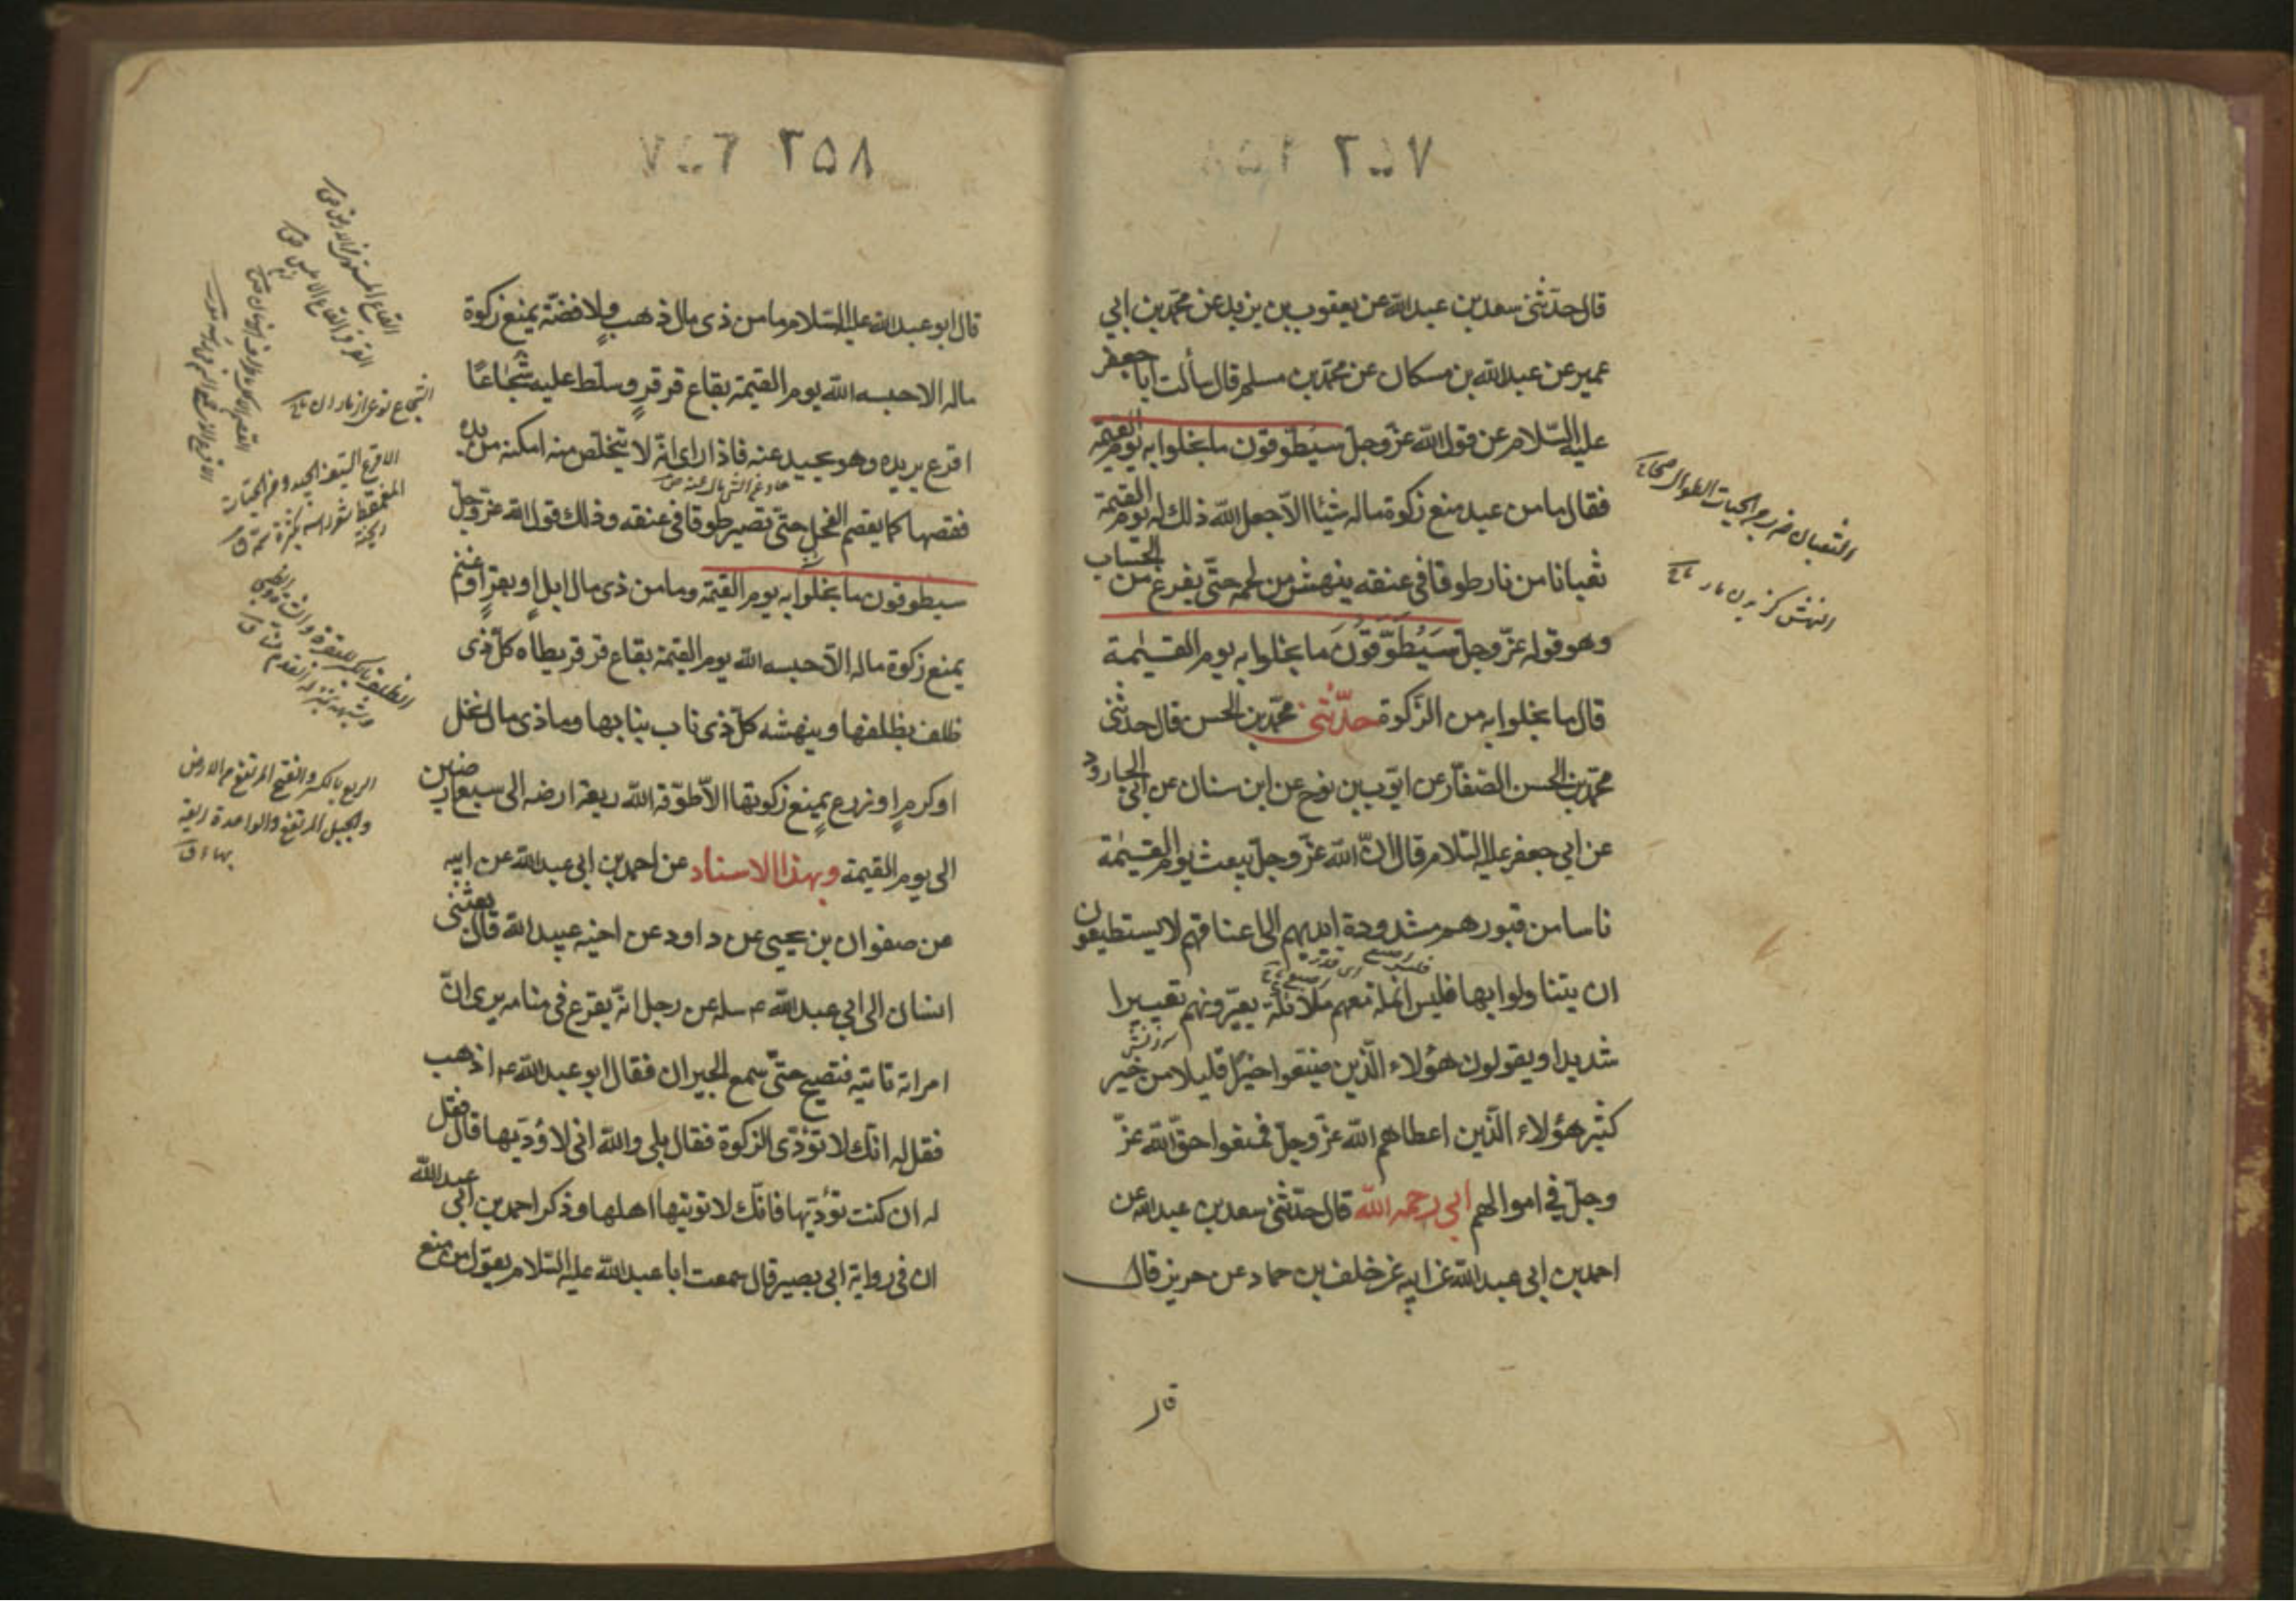 ٢٥٧
قال حدثنى سعد بن عبد الله عن يعقوب بن يزيد عن محمد بن ابي
عمير عن عبد الله بن مسكان عن محمد بن مسلم قال سألت ابا جعفر
عليه السلام عن قول الله عز وجل سيطوقون ما بخلوا به يوم القيمة
فقال ما من عبد منع زكوة ماله شيئا الا جعل الله ذلك له يوم القيمة
ثعبانا من نار طوقا فى عنقه ينهش من لحمه حتى يفرغ من الحساب
وهو قوله عز وجل سَيُطَوَّقُونَ مَا بخلوا به يوم القيمة
قال ما بخلوا به من الزكوة حدثنى محمد بن الحسن قال حدثنى
محمد بن الحسن الصفار عن ايوب بن نوح عن ابن سنان عن ابي الجارود
عن ابي جعفر عليه السلام قال ان الله عز وجل يبعث يوم القيمة
ناسا من قبورهم مشدودة ايديهم الى اعناقهم لا يستطيعون
ان يتناولوا بها قيس انملة معهم ملائكة يعيرونهم تعييرا
سرزنش
شديدا ويقولون هؤلاء الذين منعوا خيرا قليلا من خير
كثير هؤلاء الذين اعطاهم الله عز وجل فمنعوا حق الله عز
وجل في اموالهم ابي رحمه الله قال حدثنى سعد بن عبد الله عن
احمد بن ابي عبد الله عن ابيه عن خلف بن حماد عن حريز قال
قال
الثعبان ضرب من الحيات الطوال صحاح
النهش گزيدن مار
٢٥٨
قال ابو عبد الله عليه السلام ما من ذى مال ذهب ولا فضة يمنع زكوة
ماله الا حبسه الله يوم القيمة بقاع قرقر وسلط عليه شجاعًا
اقرع يريده وهو يحيد عنه فاذا راى انه لا يتخلص منه امكنه من يده
فقصمها كما يقضم الفحل حتى تصير طوقا فى عنقه وذلك قول الله عز وجل
سيطوقون ما بخلوا به يوم القيمة وما من ذى مال ابل او بقر او غنم
يمنع زكوة ماله الا حبسه الله يوم القيمة بقاع قرقر يطاه كل ذى
ظلف بظلفها وينهشه كل ذى ناب بنابها وما ذى مال نخل
او كرم او زرع يمنع زكوتها الا طوقه الله ريعة ارضه الى سبع ارضين
الى يوم القيمة وبهذا الاسناد عن احمد بن ابي عبد الله عن ابيه
عن صفوان بن يحيى عن داود عن اخيه عبد الله قال بعثنى
انسان الى ابي عبد الله ع سله عن رجل انه يفزع فى منامه يرى ان
امراة تاتيه فتصيح حتى سمع الجيران فقال ابو عبد الله ع اذهب
فقل له انك لا تؤدى الزكوة فقال بلى والله انى لاؤديها قال فقل
له ان كنت تؤديها فانك لا توتيها اهلها وذكر احمد بن ابي عبد الله
ان فى رواية ابي بصير قال سمعت ابا عبد الله عليه السلام يقول من منع
الشجاع نوعى از ماران
الريع بالكسر والفتح المرتفع من الارض
والجبل المرتفع والواحدة ريعة
بهاء ق